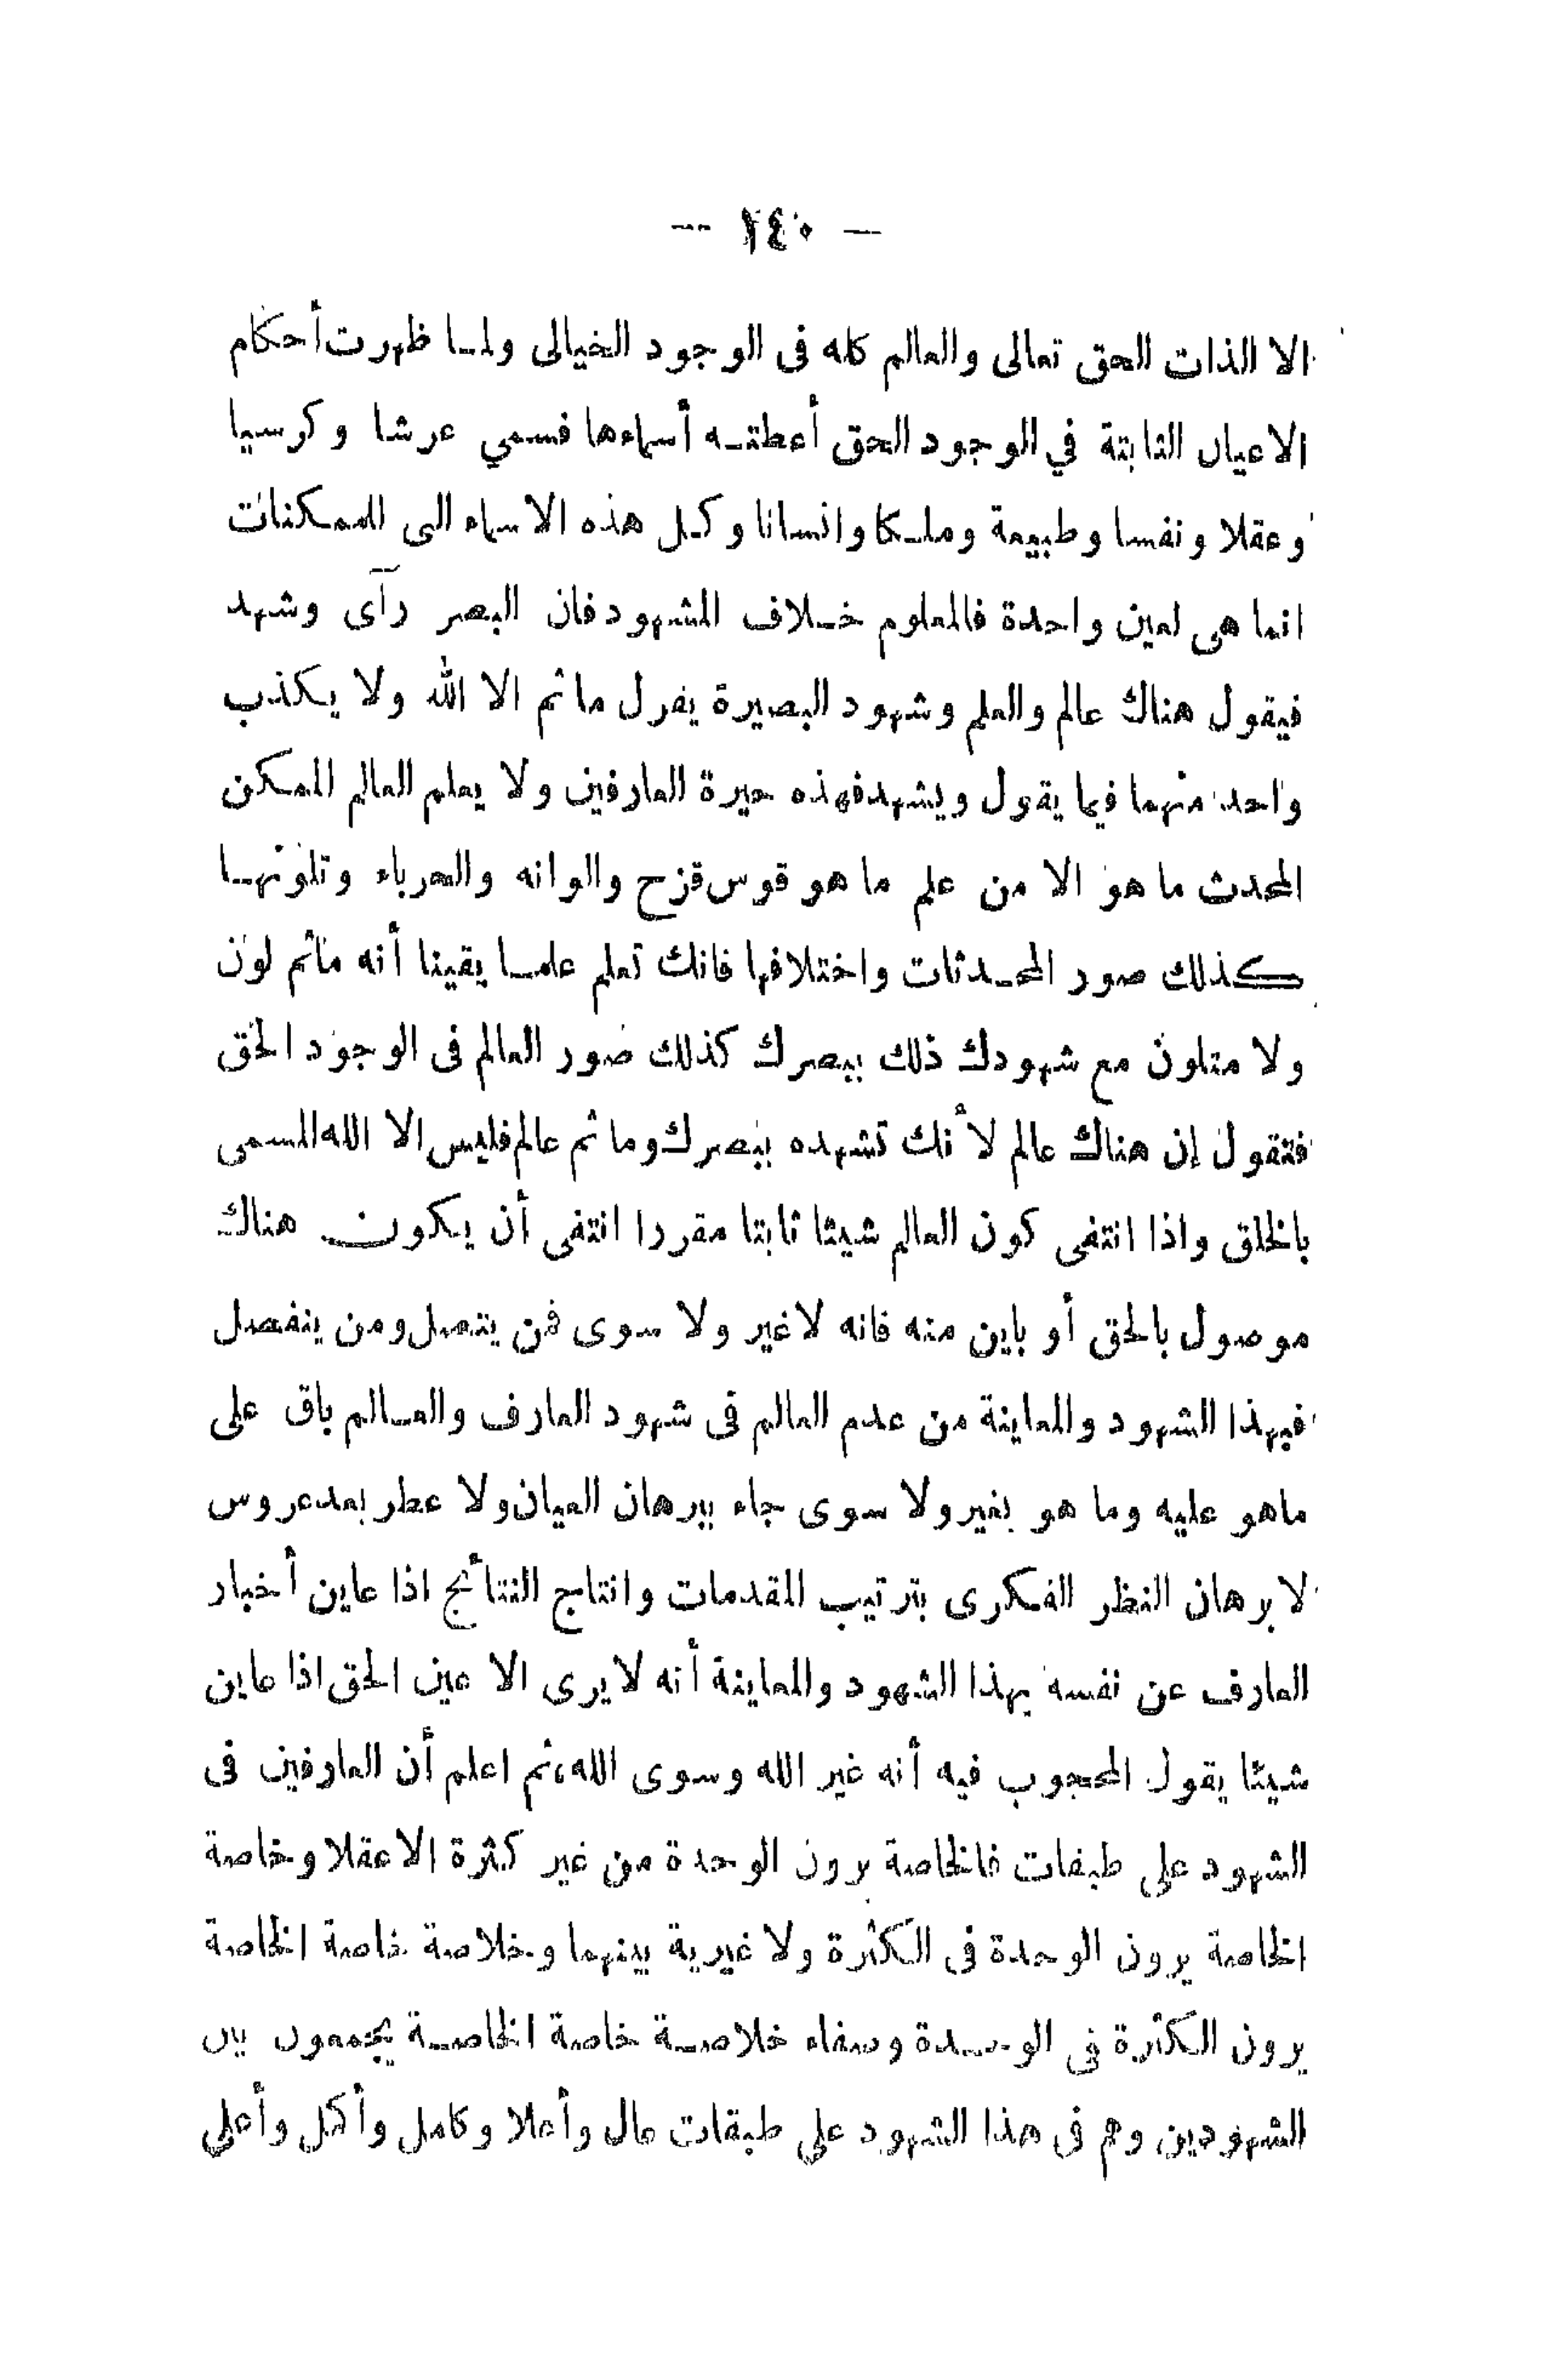 — ١٤٠ —
الا الذات الحق تعالى والعالم كله فى الوجود الخيالى ولما ظهرت أحكام
الاعيان الثابتة في الوجود الحق أعطته أسماءها فسمي عرشا وكرسيا
وعقلا ونفسا وطبيعة وملكا وانسانا وكل هذه الاسماء التى للممكنات
انما هى لعين واحدة فالمعلوم خلاف المشهود فان البصر رآى وشهد
فيقول هناك عالم والعلم وشهود البصيرة يقول ما ثم الا الله ولا يكذب
واحد منهما فيما يقول ويشهد فهذه حيرة العارفين ولا يعلم العالم الممكن
المحدث ما هو الا من علم ما هو قوس قزح والوانه والحرباء وتلونها
كذلك صور المحدثات واختلافها فانك تعلم علما يقينا أنه ماثم لون
ولا متلون مع شهودك ذلك ببصرك كذلك صور العالم فى الوجود الحق
فتقول إن هناك عالم لأنك تشهده ببصرك وما ثم عالم فليس الا الله المسمى
بالخلق واذا انتفى كون العالم شيئا ثابتا مقررا انتفى أن يكون هناك
موصول بالحق أو باين منه فانه لا غير ولا سوى فمن يتصل ومن ينفصل
فبهذا الشهود والمعاينة من عدم العالم فى شهود العارف والعالم باق على
ماهو عليه وما هو بغير ولا سوى جاء ببرهان العيان ولا عطر بعد عروس
لا برهان النظر الفكرى بترتيب المقدمات وانتاج النتائج اذا عاين أخبار
العارف عن نفسه بهذا الشهود والمعاينة أنه لا يرى الا عين الحق اذا عاين
شيئا يقول المحجوب فيه أنه غير الله وسوى الله، ثم اعلم أن العارفين فى
الشهود على طبقات فالخاصة يرون الوحدة من غير كثرة الا عقلا وخاصة
الخاصة يرون الوحدة فى الكثرة ولا غيرية بينهما وخلاصة خاصة الخاصة
يرون الكثرة فى الوحدة وصفاء خلاصة خاصة الخاصة يجمعون بين
الشهودين وهم فى هذا الشهود على طبقات عال وأعلا وكامل وأكمل وأعلى